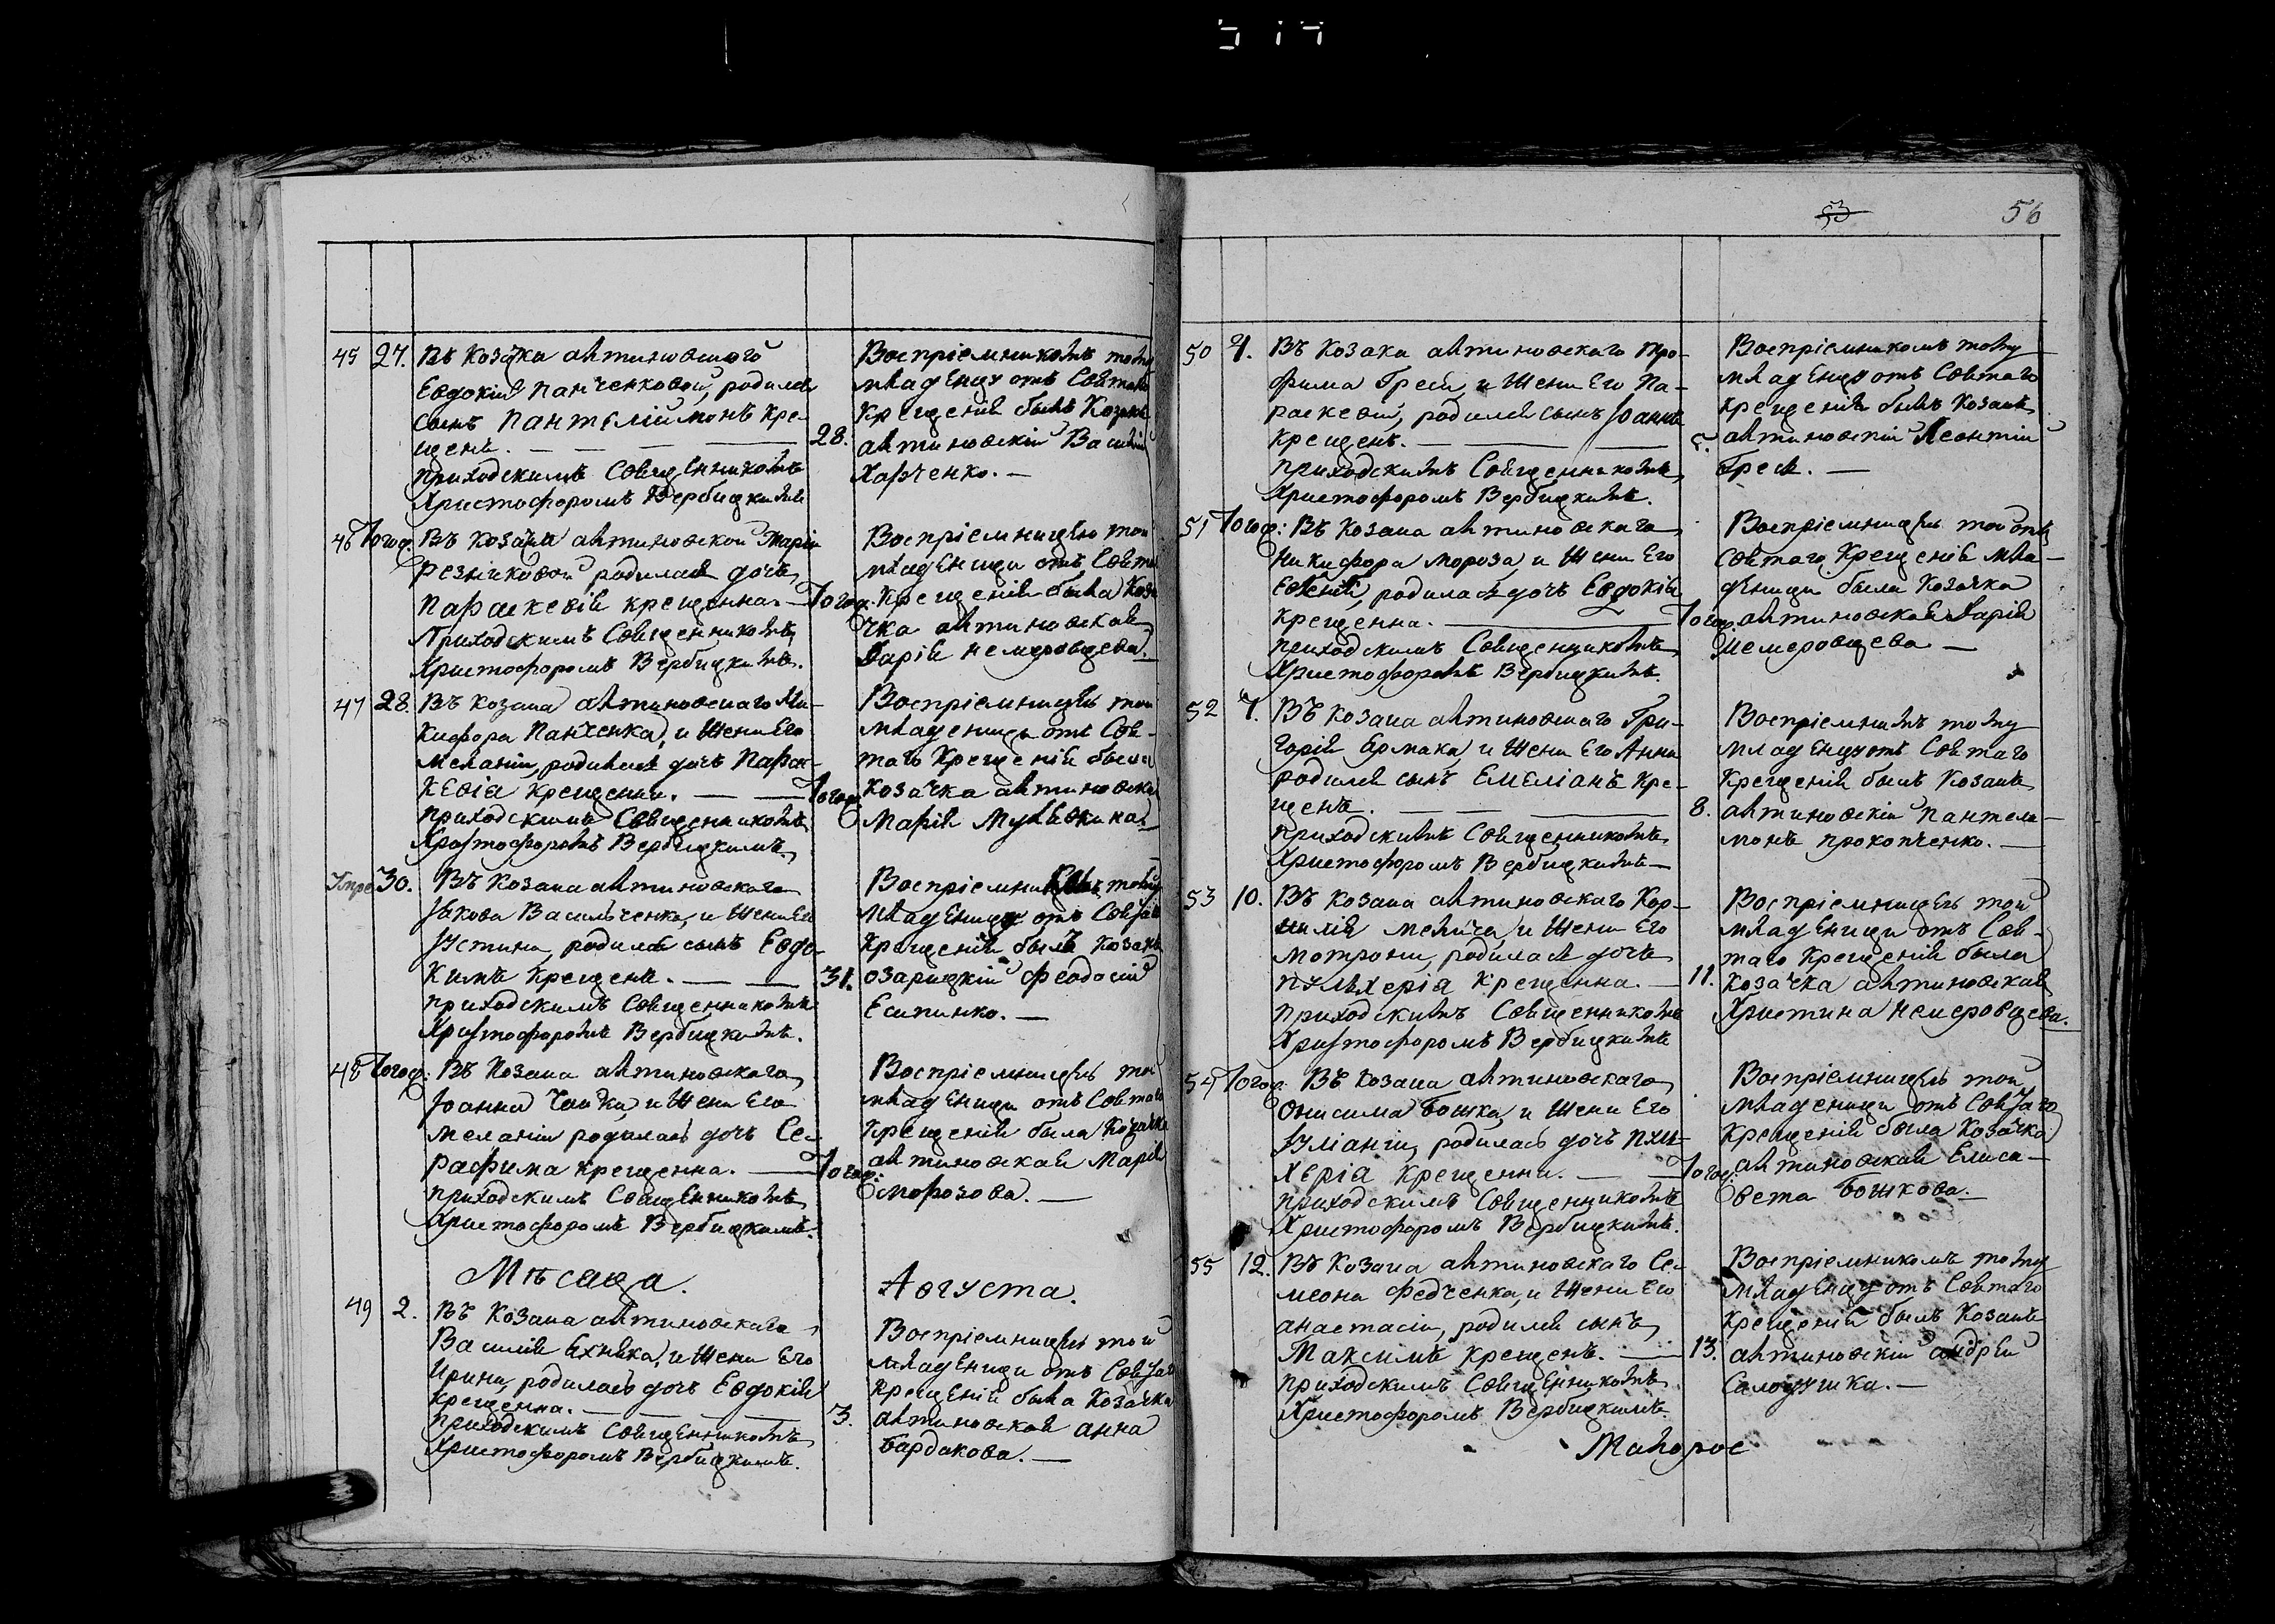 53 56
45 27. Въ Козачка алтиновскаго
Евдокіи Панченковой, родился
сынъ Пантелiимонъ кре-
щенъ. — — — 28.
приходскимъ Священникомъ
Христофоромъ Вербицкимъ
Воспріемникомъ тому
младенцу отъ Святаго
Крещенія былъ Козакъ
алтиновскій Василій
Харченко. —
46 Того Въ Козачки алтиновской Маріи
родилась дочь
Параскевія крещенна. — Того
Приходскимъ Священникомъ
Христофоромъ Вербицкимъ.
Воспріемницею той
младеницы отъ Свята
Крещенія была Коза
чка алтиновская
Дарія Немеровцева.
47 28. Въ Козака алтиновскаго Ни-
кифора Панченка, и жены Его
Меланіи, родилася дочь Параc-
кевія крещенна. — — Того
приходскимъ Священникомъ
Христофоромъ Вербицкимъ.
Воспріемницею той
младеницы отъ Свя-
таго Крещенія была
Козачка алтиновская
Марія
30. Въ Козака алтиновскаго
Іакова Васильченка, и жены Его
Іустины, родился сынъ Евдо-
кимъ крещенъ. — — 31.
приходскимъ Священникомъ
Христофоромъ Вербицкимъ.
тому
младенцу отъ Святаго
Крещенія былъ Козакъ
озарицкій Феодосій
Есипенко. —
48 Того Въ Козака алтиновскаго
Іоанна Чайки, и жены Его
Меланіи родилась дочь Се-
рафима крещенна. — Того
приходскимъ Священникомъ
Христофоромъ Вербицкимъ.
Воспріемницею той
младеницы отъ Святаго
Крещенія была Козачка
алтиновская Марія
Морозова. —
Мѣсяца.
Августа.
49 2. Въ Козака алтиновскаго
Василія и жены Его
Ирины, родилась дочь Евдокія
крещенна. — — — 3.
приходскимъ Священникомъ
Христофоромъ Вербицкимъ.
Воспріемницею той
младеницы отъ Святаго
Крещенія была Козачка
алтиновская анна
Бардакова. —
50 4. Въ Козака алтиновскаго Тро-
фима и жены Его Па-
раскевіи, родился сынъ Іоаннъ
крещенъ. — — 5.
приходскимъ Священникомъ
Христофоромъ Вербицкимъ.
Воспріемникомъ тому
младенцу отъ Святаго
Крещенія былъ Козакъ
алтиновскій Леонтій
51 Того Въ Козака алтиновскаго
Никифора Мороза, и жены Его
родилась дочь Евдокія
крещенна. — Того
приходскимъ Священникомъ
Христофоромъ Вербицкимъ.
Воспріемницею той отъ
Святаго Крещенія мла-
деницы была Козачка
алтиновская Дарія
Немеровцева —
52 7. Въ Козака алтиновскаго Гри-
горія Ермака, и жены Его Анны
родился сынъ Емеліанъ кре-
щенъ. — — — 8.
приходскимъ Священникомъ
Христофоромъ Вербицкимъ —
тому
младенцу отъ Святаго
Крещенія былъ Козакъ
алтиновскій Пантели-
монъ Прокопченко. —
53 10. Въ Козака алтиновскаго Кор-
нилія и жены Его
Мотроны, родилася дочь
Пульхерія крещенна. — 11.
приходскимъ Священникомъ
Христофоромъ Вербицкимъ
Воспріемницею той
младеницы отъ Свя-
таго Крещенія была
Козачка алтиновская
Христина Немеровцева.
54 Того Въ Козака алтиновскаго
Онисима Бошка, и жены Его
Іуліаніи, родилась дочь Пуль-
херія крещенна. — — Того
приходскимъ Священникомъ
Христофоромъ Вербицкимъ.
Воспріемницею той
младеницы отъ Святаго
Крещенія была Козачка
алтиновская Елиса-
вета Бошкова. —
55 12. Въ Козака алтиновскаго Се-
меона Федченка, и жены Его
анастасіи, родился сынъ
Максимъ крещенъ. — 13.
приходскимъ Священникомъ
Христофоромъ Вербицкимъ.
Воспріемникомъ тому
младенцу отъ Святаго
Крещенія былъ Козакъ
алтиновскій андрей